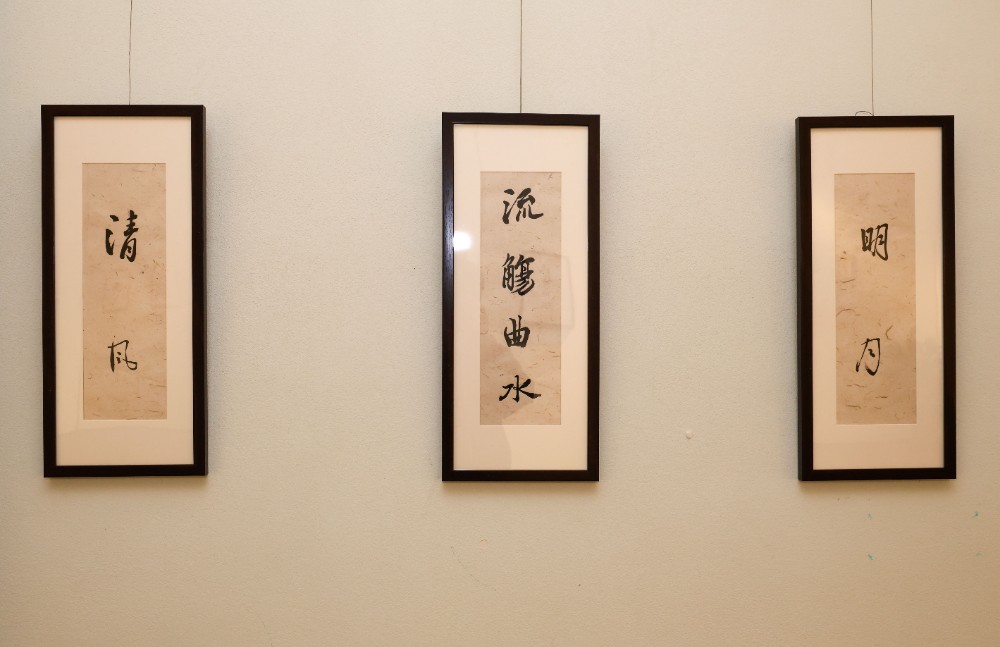 清风
流觴曲水
明月